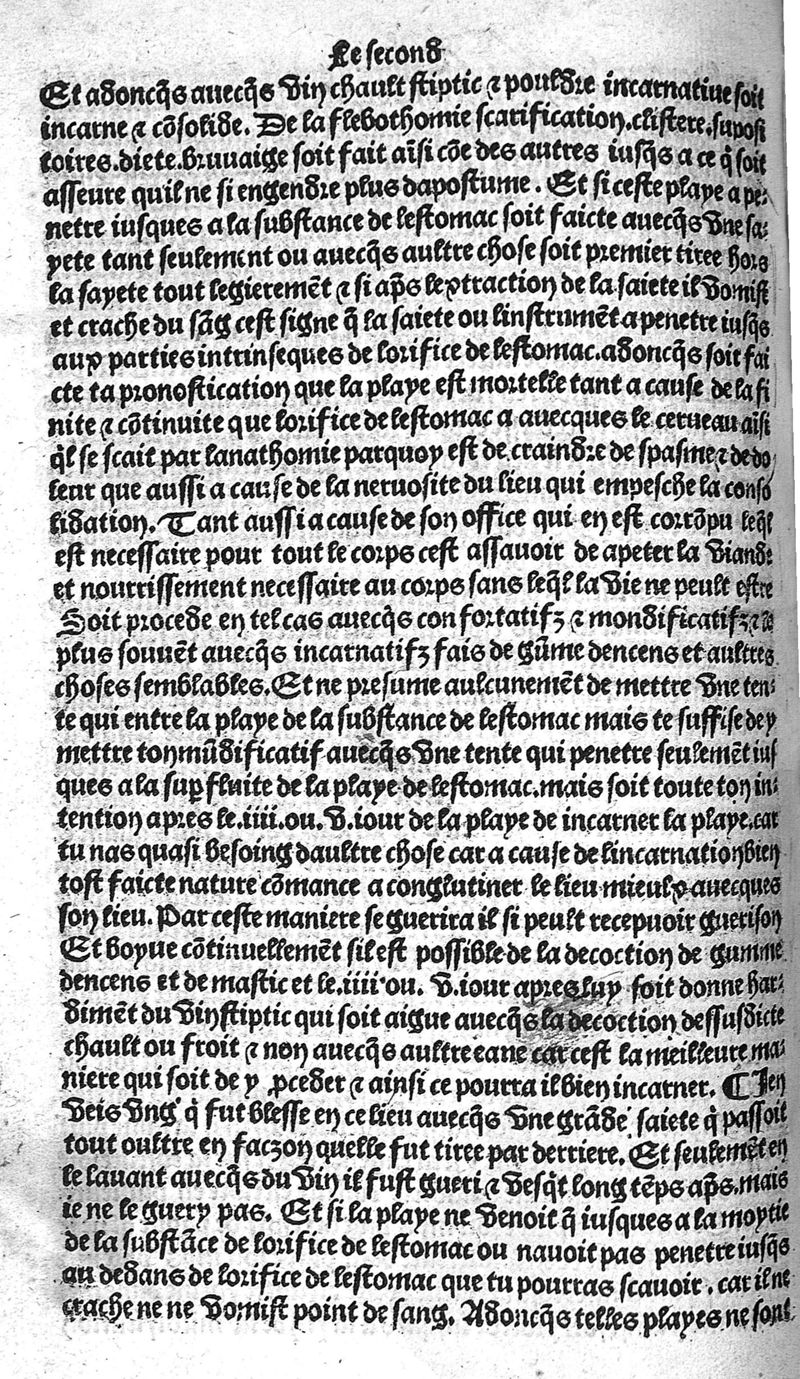 Le second
Et adoncq̃s auecq̃s vin chault stiptic ⁊ pouldre incarnatiue soit
incarne ⁊ cõsolide. De la flebothomie scarification.clistere.suposi
toires.diete.bruuaige soit fait aĩsi cõe des autres iusq̃s a ce q̃ soit
asseure quil ne si engendre plus dapostume. Et si ceste playe a pe-
netre iusques a la substance de lestomac soit faicte auecq̃s vne sa-
yete tant seulement ou auecq̃s aultre chose soit premier tiree hors
la sayete tout legieremẽt ⁊ si ap̃s lextraction de la saiete il vomist
et crache du sãg cest signe q̃ la saiete ou linstrumẽt a penetre iusq̃s
aux parties intrinseques de lorifice de lestomac.adoncq̃s soit fai
cte ta pronostication que la playe est mortelle tant a cause de la fi
nite ⁊ cõtinuite que lorifice de lestomac a auecques le cerueau aĩsi
q̃l se scait par lanathomie parquoy est de craindre de spasme ⁊ de do
leur que aussi a cause de la neruosite du lieu qui empesche la conso
lidation. Tant aussi a cause de son office qui en est corrõpu leq̃l
est necessaire pour tout le corps cest assauoir de apeter la viande
et nourrissement necessaire au corps sans leq̃l la vie ne peult estre
Soit procede en tel cas auecq̃s confortatifz ⁊ mondificatifz ⁊ le
plus souuẽt auecq̃s incarnatifz fais de gũme dencens et aultres
choses semblables. Et ne presume aulcunemẽt de mettre vne ten-
te qui entre la playe de la substance de lestomac mais te suffise de y
mettre ton mũdificatif auecq̃s vne tente qui penetre seulemẽt ius
ques a la suꝑfluite de la playe de lestomac.mais soit toute ton in-
tention apres le.iiii.ou.v.iour de la playe de incarner la playe.car
tu nas quasi besoing daultre chose car a cause de lincarnation bien
tost faicte nature cõmance a conglutiner le lieu mieulx auecques
son lieu. Par ceste maniere se guerira il si peult recepuoir guerison
Et boyue cõtinuellemẽt sil est possible de la decoction de gumme
dencens et de mastic et le.iiii ou. v.iour apres luy soit donne har-
dimẽt du vin stiptic qui soit aigue auecq̃s la decoction dessusdicte
chault ou froit ⁊ non auecq̃s aultre eaue car cest la meilleure ma-
niere qui soit de y ꝓceder ⁊ ainsi ce pourra il bien incarner. ¶ Jen
veis vng q̃ fut blesse en ce lieu auecq̃s vne grãde saiete q̃ passoit
tout oultre en faczon quelle fut tiree par derriere. Et seulemẽt en
le lauant auecq̃s du vin il fust gueri ⁊ vesq̃t long tẽps ap̃s.mais
ie ne le guery pas. Et si la playe ne venoit q̃ iusques a la moytie
de la substãce de lorifice de lestomac ou nauoit pas penetre iusq̃s
au dedans de lorifice de lestomac que tu pourras scauoir . car il ne
crache ne ne vomist point de sang. Adoncq̃s telles playes ne sont